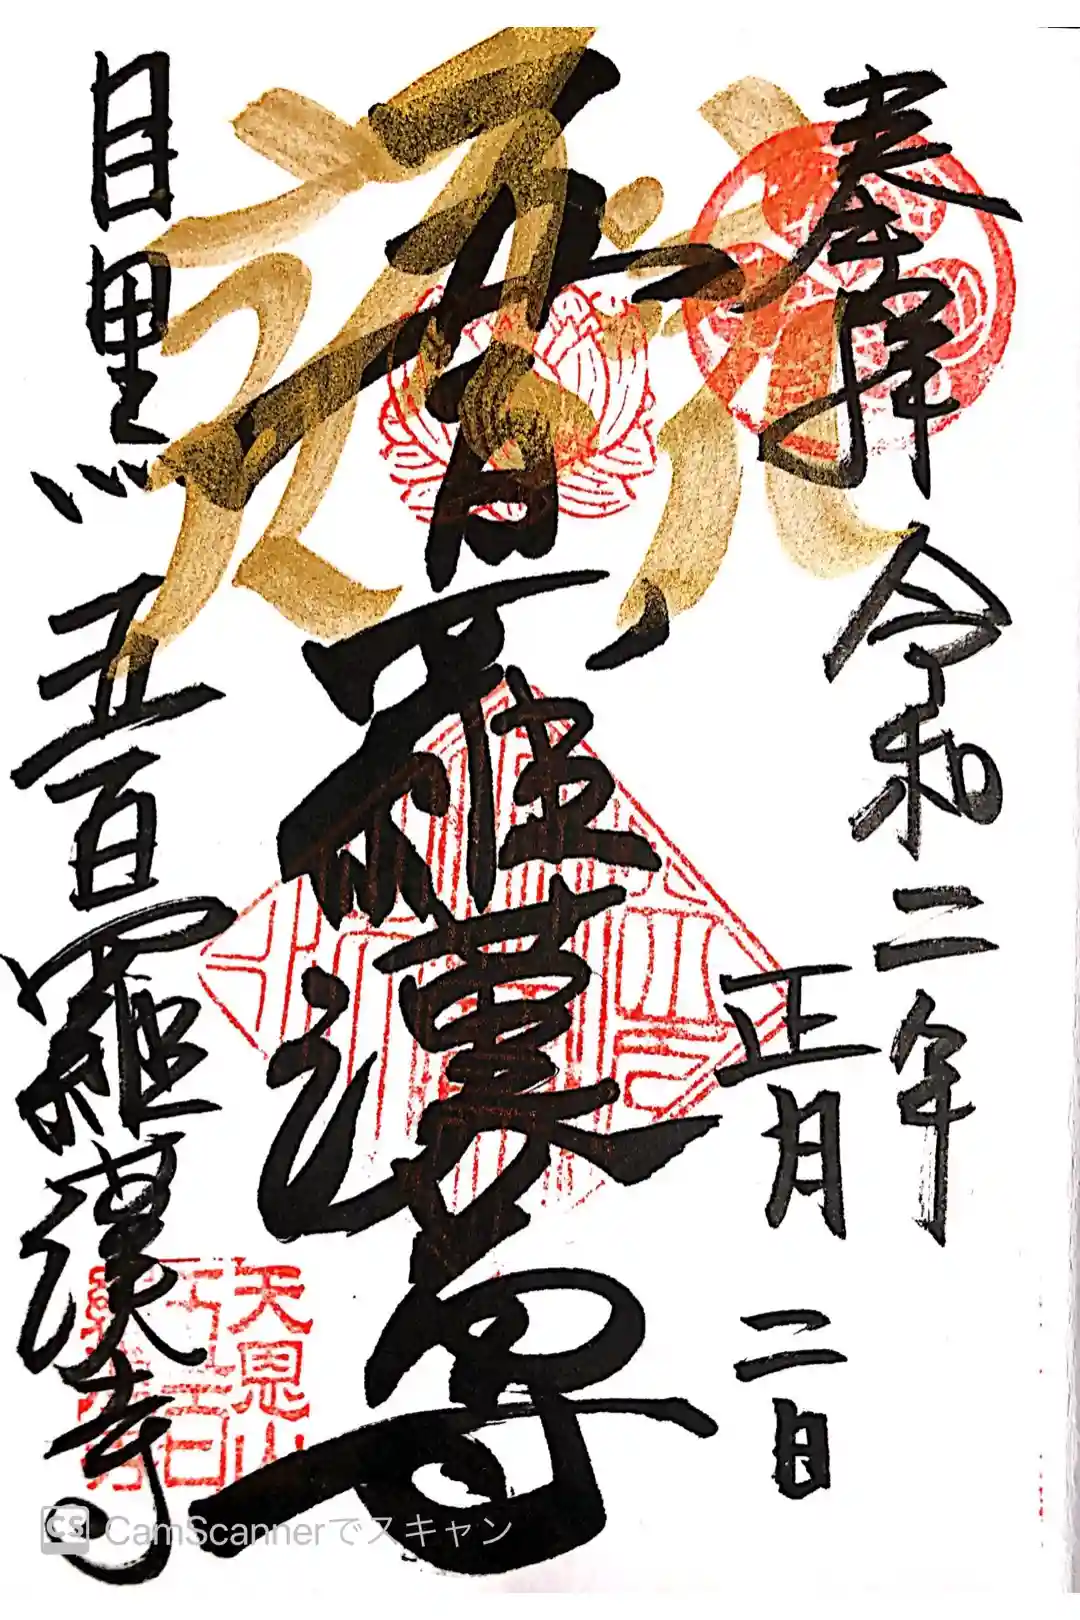 奉拝
令和二年
正月二日
五百羅漢尊
目黒
五百羅漢寺
天恩山
五百
羅漢寺
CS CamScannerでスキャン